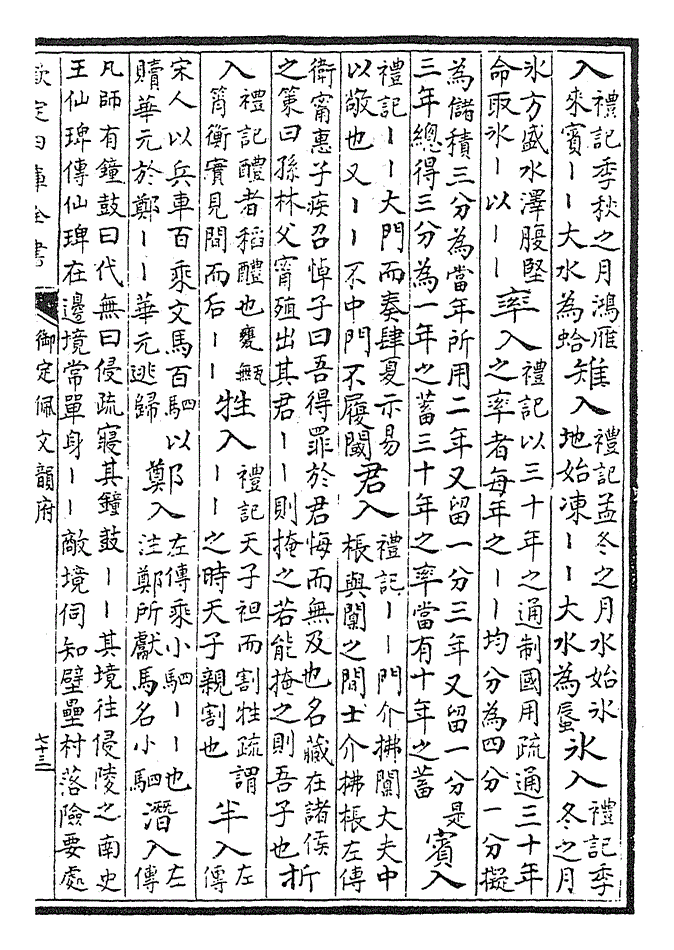 入禮記季秋之月鴻雁來賓丨丨大水為蛤雉入禮記孟冬之月水始氷地始凍丨丨大水為蜃氷入禮記季冬之月
氷方盛水澤腹堅命取氷丨以丨丨率入禮記以三十年之通制國用疏通三十年之率者每年之丨丨均分為四分一分擬
為儲積三分為當年所用二年又留一分三年又留一分是三年總得三分為一年之蓄三十年之率當有十年之蓄賓入
禮記丨丨大門而奏肆夏示易以敬也又丨丨不中門不履閾君入禮記丨丨門介拂闑大夫中棖與闑之間士介拂棖左傳
衛甯惠子疾召悼子曰吾得罪於君悔而無及也名藏在諸侯之策曰孫林父甯殖出其君丨丨則掩之若能掩之則吾子也折
入禮記醴者稻醴也甕甒筲衡實見間而后丨丨牲入禮記天子袒而割牲疏謂丨丨之時天子親割也半入左傳
宋人以兵車百乘文馬百駟以贖華元於鄭丨丨華元逃歸鄭入左傳乘小駟丨丨也注鄭所獻馬名小駟潛入左傳
凡師有鐘鼓曰伐無曰侵疏寢其鐘鼓丨丨其境往侵陵之南史王仙琕傳仙琕在邊境常單身丨丨敵境伺知壁壘村落險要處
欽定四庫全書
御定佩文韻府
七十三